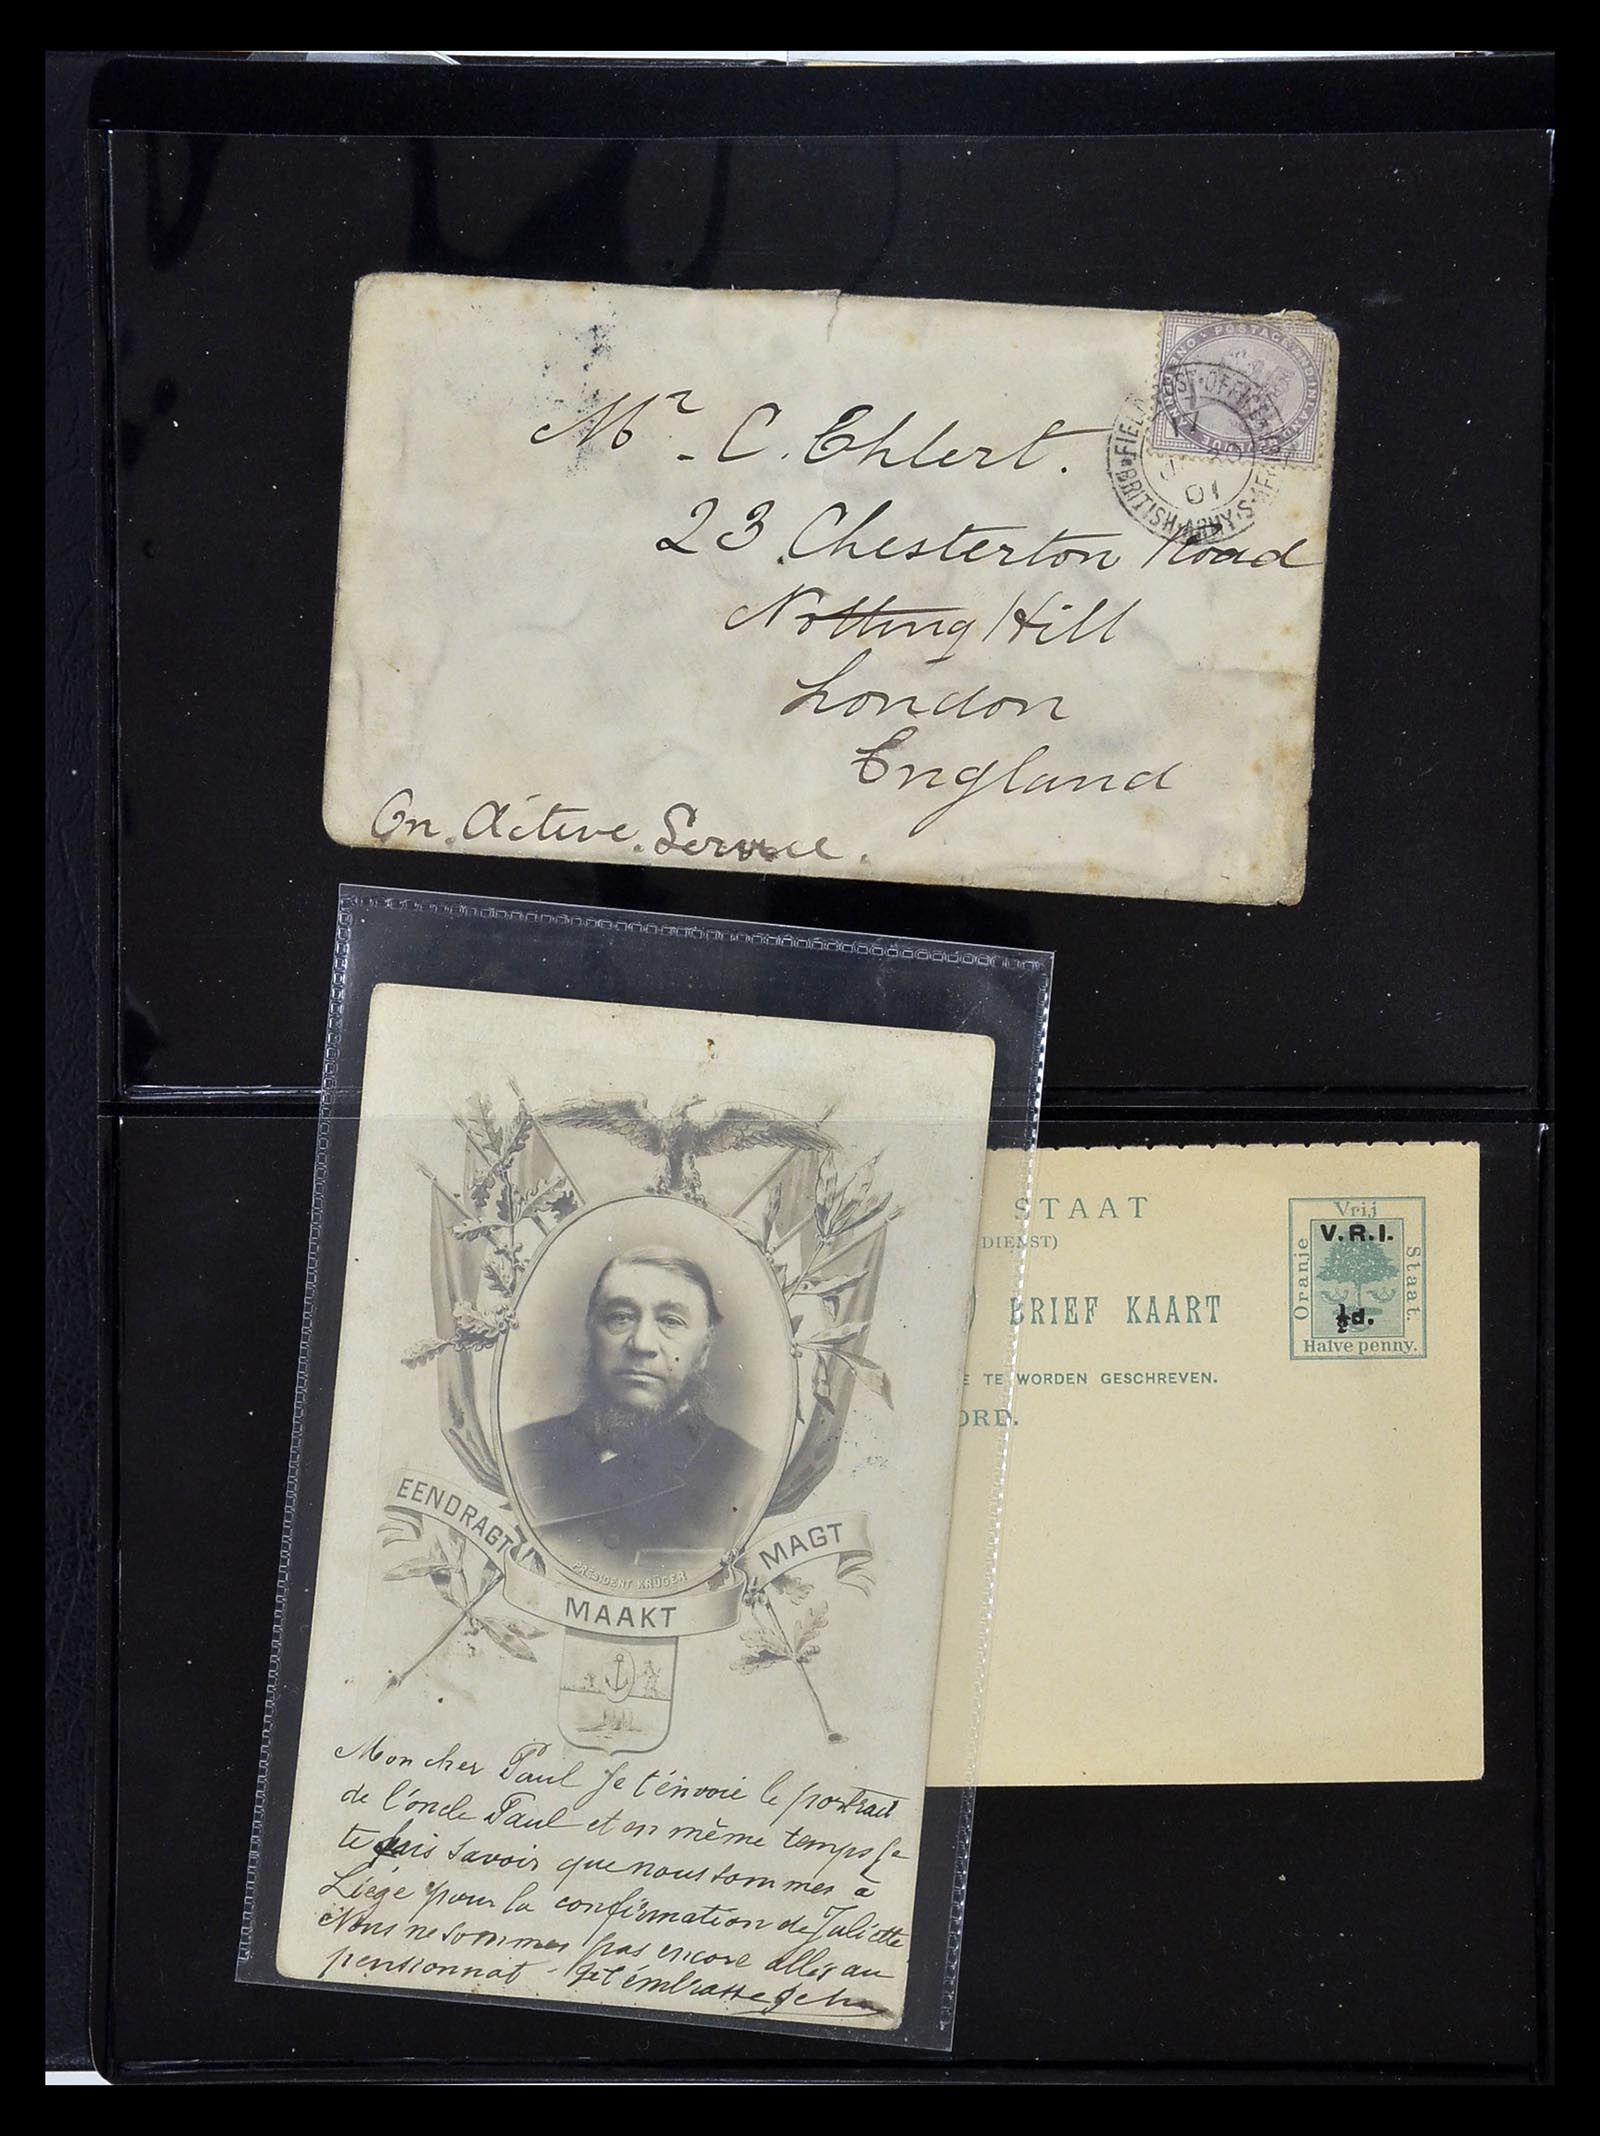 Mr. C. Ehlert.
23. Chesterton Road
Notting Hill
London
England
On. Active. Service.
POSTAGE AND INLAND REVENUE
ONE PENNY
FIELD POST OFFICE
01
BRITISH ARMY S. AFRICA
EENDRAGT
MAAKT
MAGT
PRÉSIDENT KRÜGER
Mon cher Paul Je t'envoie le portrait
de l'oncle Paul et en même temps je
te fais savoir que nous sommes à
Liége pour la confirmation de Juliette
Nous ne sommes pas encore allés au
pensionnat - Je t'embrasse
STAAT
DIENST)
BRIEF KAART
E TE WORDEN GESCHREVEN.
ORD.
Vrij
Oranje
V.R.I.
Staat.
½d.
Halve penny.